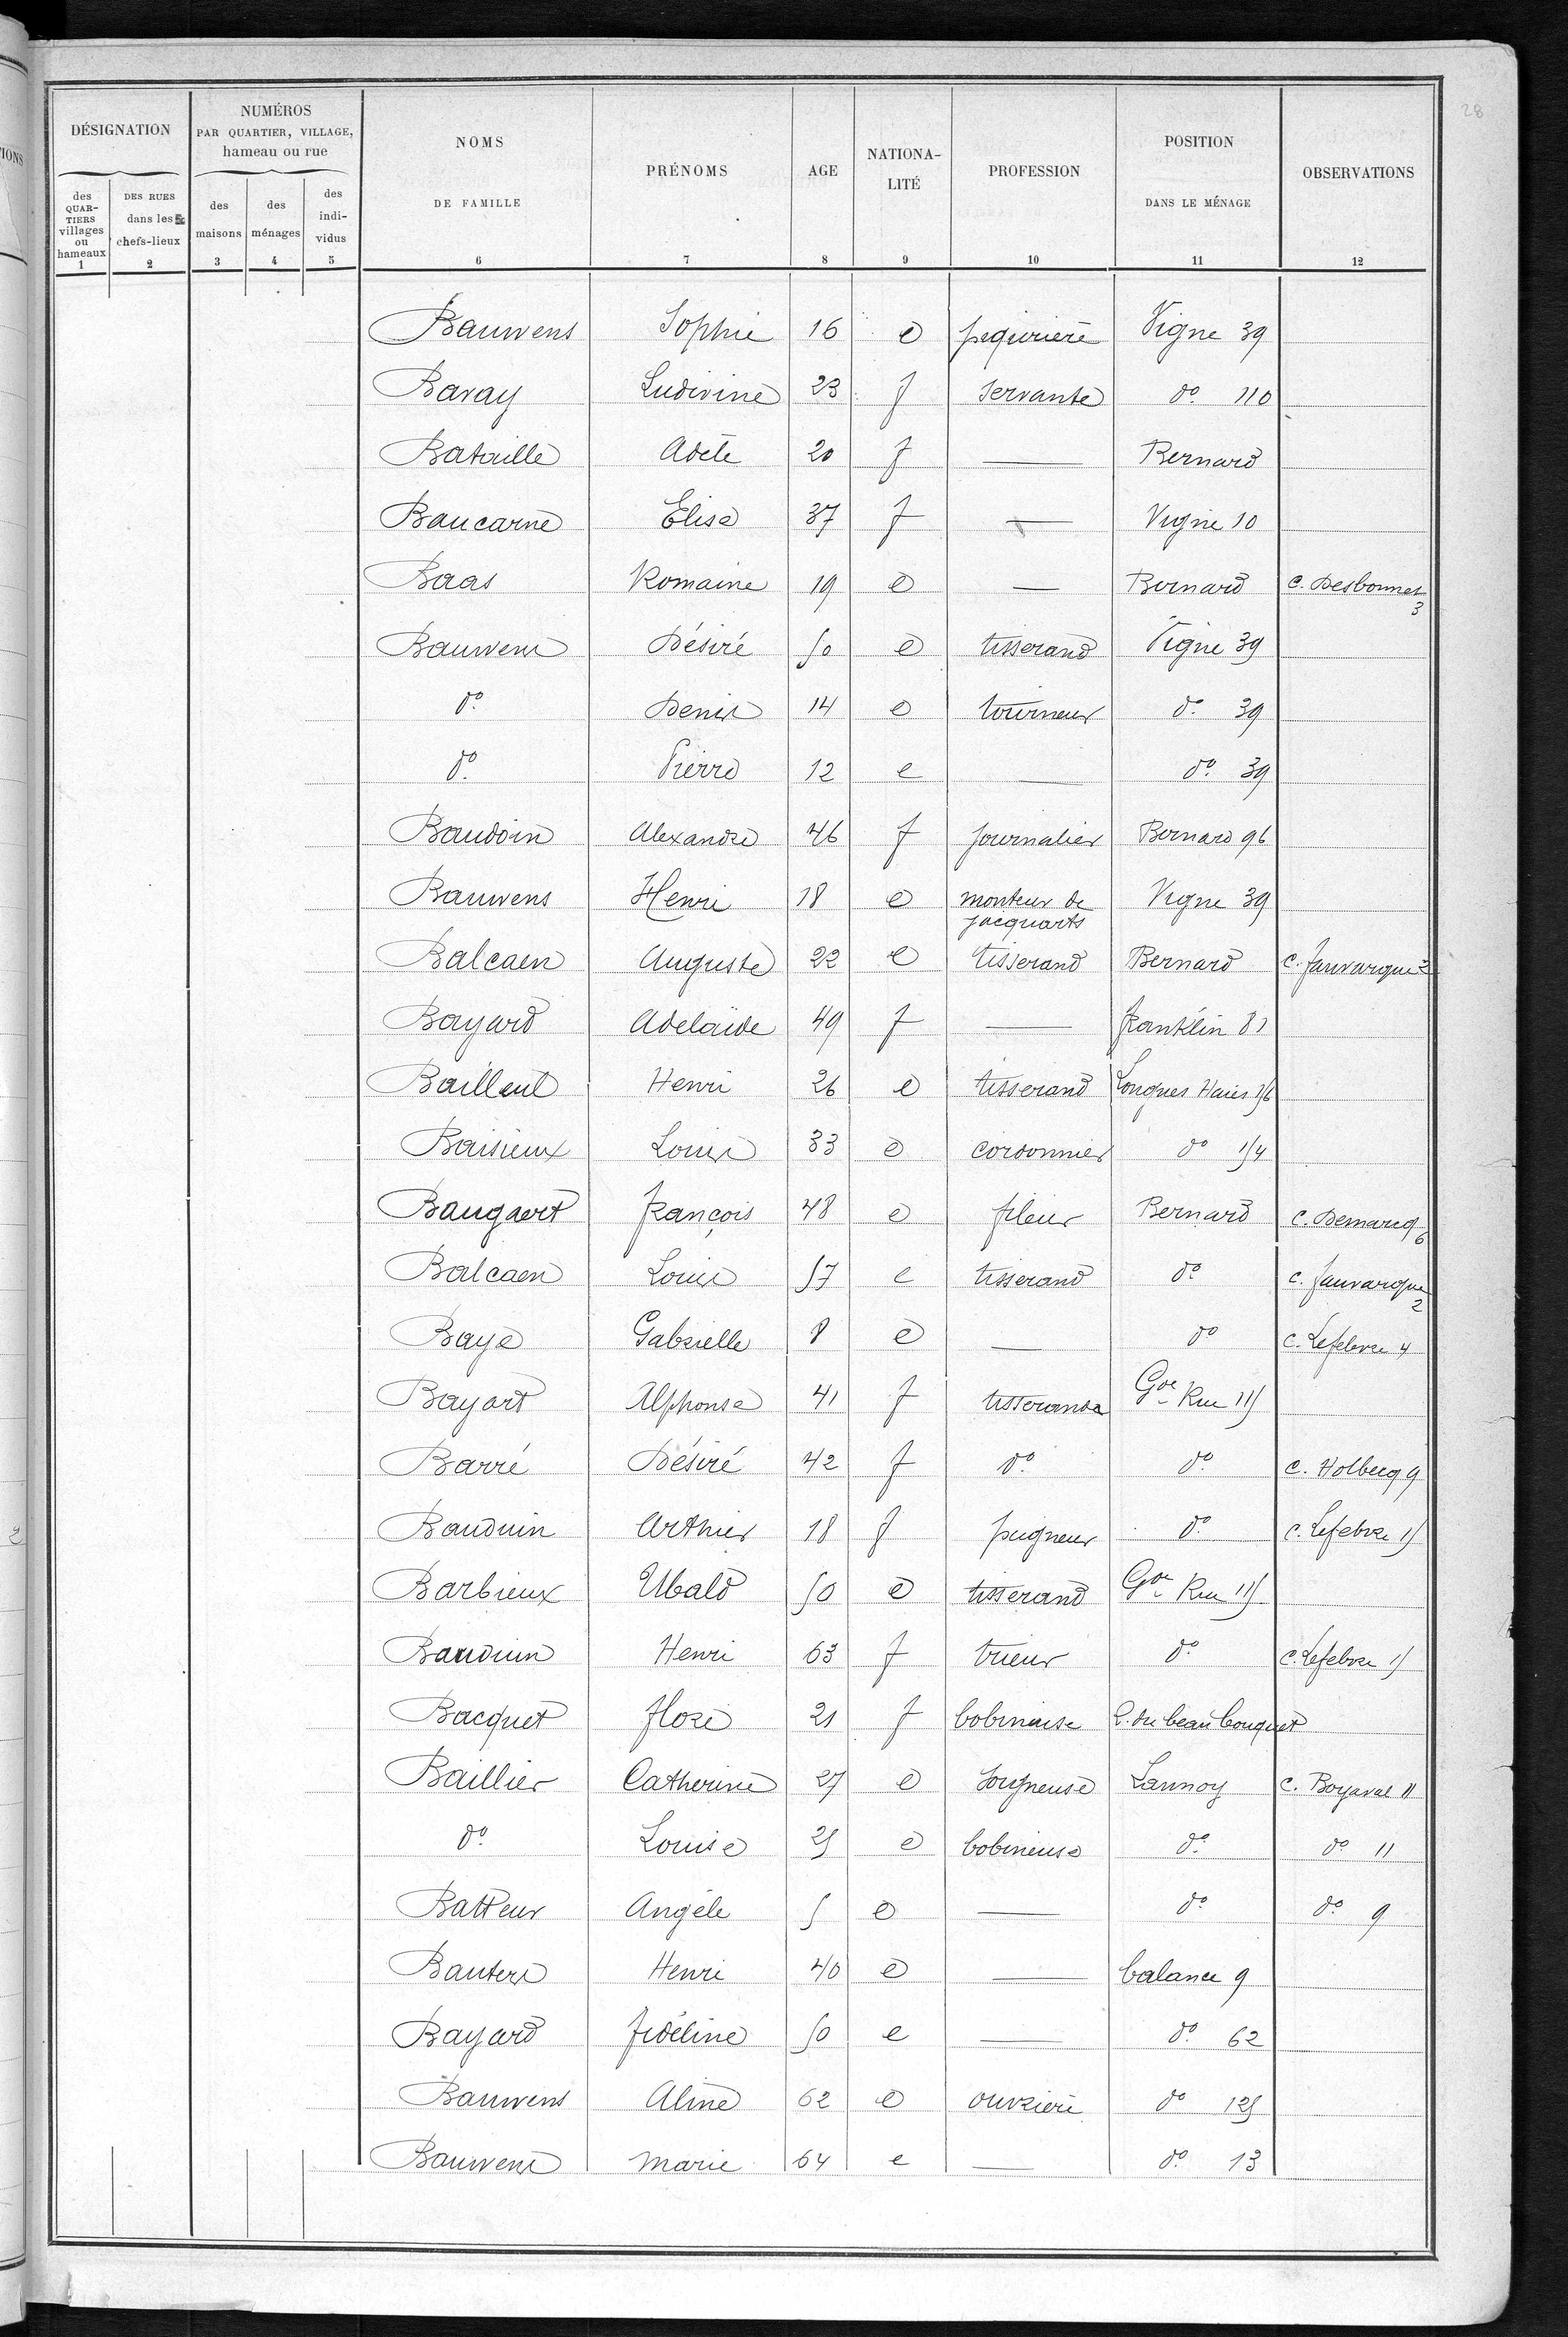 28
DÉSIGNATION
NUMÉROS PAR QUARTIER, VILLAGE, hameau ou rue
NOMS DE FAMILLE
PRÉNOMS
AGE
NATIONA-LITÉ
PROFESSION
POSITION DANS LE MÉNAGE
OBSERVATIONS
des QUAR-TIERS villages ou hameaux
DES RUES dans les chefs-lieux
des maisons
des ménages
des indi-vidus
1 2 3 4 5 6 7 8 9 10 11 12
Bauwens Sophie 16 e Vigne 39
Bavay Ludivine 23 f servante do 110
Bataille Adèle 20 f — Bernard
Baucarne Elise 37 f — Vigne 10
Baas Romaine 19 e — Bernard C. Desbonnet 3
Bauwens Désiré 50 e tisserand Vigne 39
do Denis 14 e tourneur do 39
do Pierre 12 e — do 39
Baudoin Alexandre 46 f journalier Bernard 96
Bauwens Henri 18 e monteur de jacquarts Vigne 39
Balcaen Auguste 22 e tisserand Bernard C. Fauvarque 2
Bayard Adelaïde 49 f — Franklin 81
Bailleul Henri 26 e tisserand Longues Haies 156
Baisieux Louis 33 e cordonnier do 154
Baugaert François 48 e fileur Bernard C. Demarcq 6
Balcaen Louis 57 e tisserand do C. Fauvarque 2
Baye Gabrielle 8 e — do C. Lefebvre 4
Bayart Alphonse 41 f tisserande Gde Rue 115
Barré Désiré 42 f do do C. Holbecq 9
Bauduin Arthur 18 f peigneur do C. Lefebvre 15
Barbieux Ubald 50 e tisserand Gde Rue 115
Bauduin Henri 63 f trieur do C. Lefebvre 15
Bacquet Flore 21 f bobineuse R. du beau bouquet
Baillier Catherine 27 e soigneuse Lannoy C. Boyaval 11
do Louise 25 e bobineuse do do 11
Batteur Angèle 5 e — do do 9
Bauters Henri 40 e — balance 9
Bayard Fidéline 50 e — do 62
Bauwens Aline 62 e ouvrière do 125
Bauwens Marie 64 e — do 13